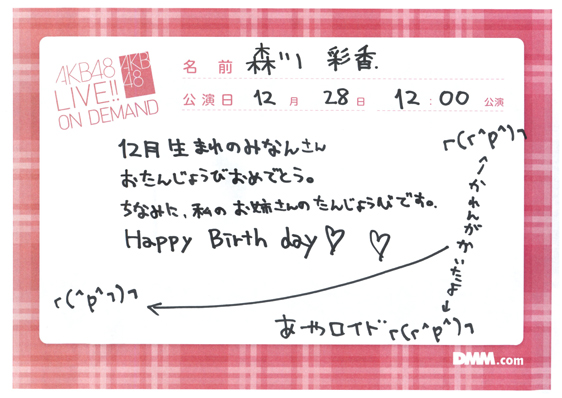 AKB48
LIVE!!
ON DEMAND
AKB
48
名前 森川 彩香.
公演日 12月 28日 12:00 公演
12月生まれのみなんさん
おたんじょうびおめでとう。
ちなみに、私のお姉さんのたんじょうびです。
Happy Birthday♡ ♡
r(r^p^)┐
かれんがかいたよ
r(^p^┐)┐
あやロイド r(r^p^)┐
DMM.com